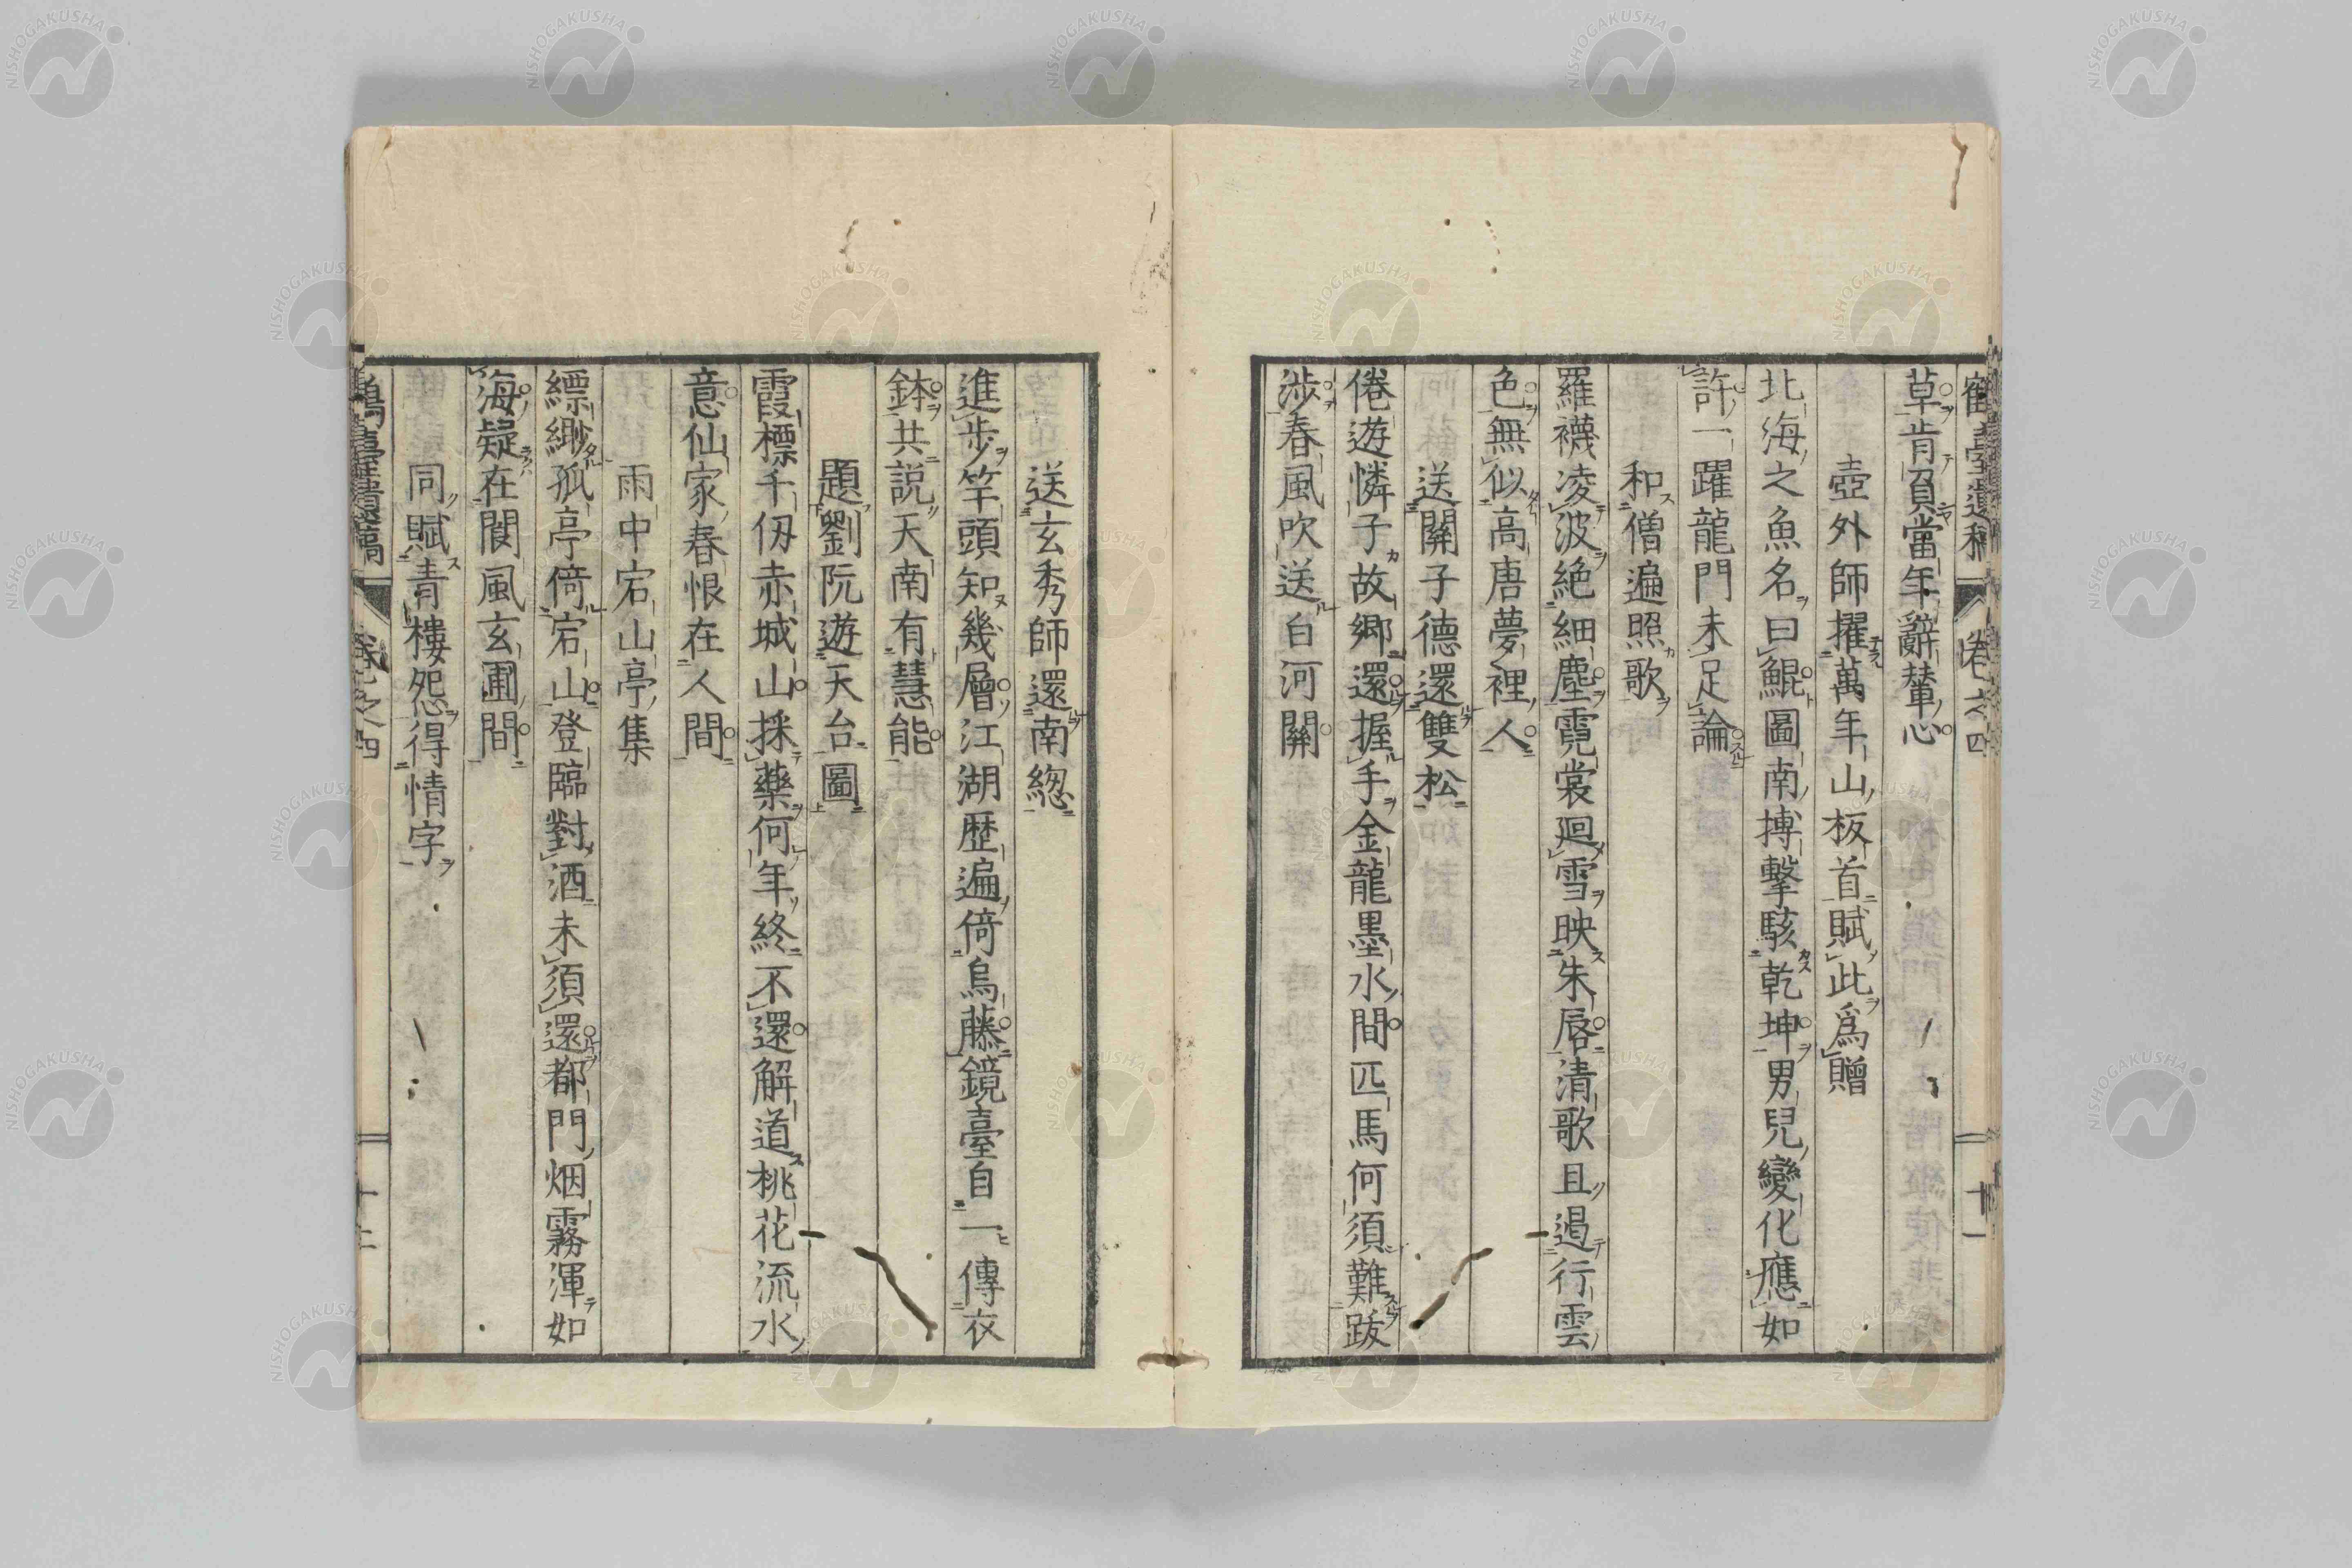 鶴臺遺稿 卷之四 十一
草肯負當年辭輦心
壺外師擢萬年山板首賦此爲贈
北海之魚名曰鯤圖南搏擊駭乾坤男兒變化應如
許一躍龍門未足論
和僧遍照歌
羅襪凌波絶細塵霓裳迴雪映朱唇清歌且遏行雲
色無似高唐夢裡人
送關子德還雙松
倦遊憐子故鄉還握手金龍墨水間匹馬何須難跋
涉春風吹送白河關
送玄秀師還南緫
進步竿頭知幾層江湖歷遍倚烏藤鏡臺自一傳衣
鉢共説天南有慧能
題劉阮遊天台圖
霞標千仭赤城山採藥何年終不還解道桃花流水
意仙家春恨在人間
雨中宕山亭集
縹緲孤亭倚宕山登臨對酒未須還都門烟霧渾如
海疑在閬風玄圃間
同賦青樓怨得情字
鶴臺遺稿 卷之四 十二
NISHOGAKUSHA